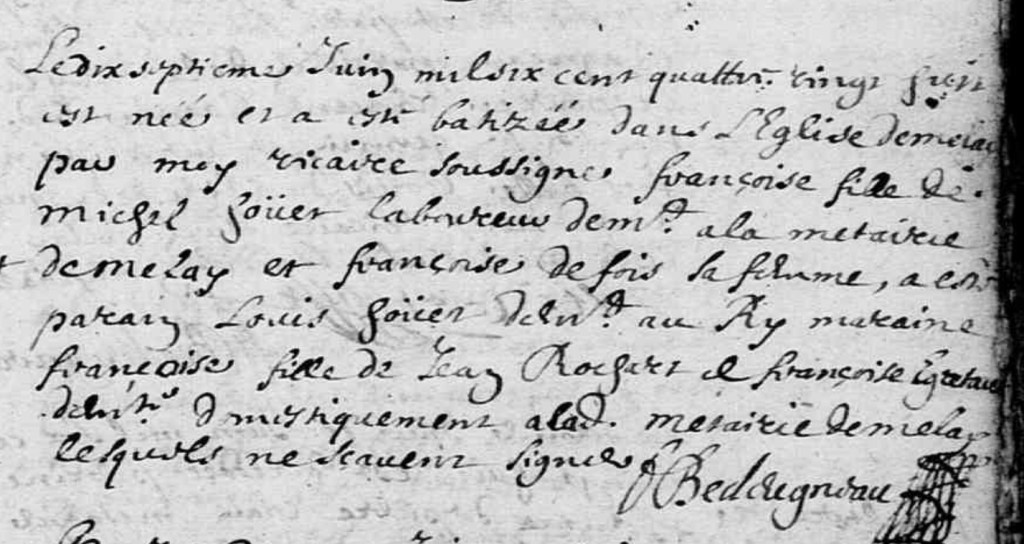 Le dix septieme Juin mil six cent quattre vingt huit
est néé et a esté batizéé dans L'Eglise de melay
par moy vicaire soussigné françoise fille de
michel hoüet laboureur demt. a la metairie
de melay et françoise de fois sa femme, a esté
parain Louis hoüet demt. au Ry maraine
françoise fille de Jean Rochet et françoise
demts dmestiquement a lad. metairie de melay
lesquels ne scavent signer